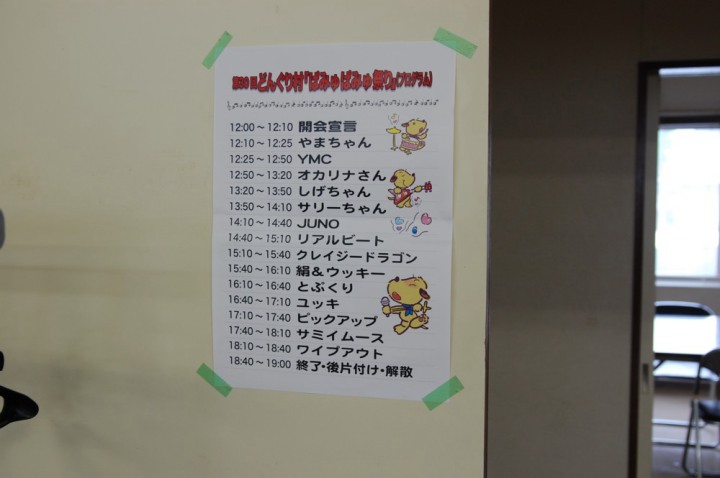 第30回どんぐり村「ぱみゅぱみゅ祭り」(プログラム)
12:00～12:10 開会宣言
12:10～12:25 やまちゃん
12:25～12:50 YMC
12:50～13:20 オカリナさん
13:20～13:50 しげちゃん
13:50～14:10 サリーちゃん
14:10～14:40 JUNO
14:40～15:10 リアルビート
15:10～15:40 クレイジードラゴン
15:40～16:10 絹＆ウッキー
16:10～16:40 とぷくり
16:40～17:10 ユッキ
17:10～17:40 ビックアップ
17:40～18:10 サミイムース
18:10～18:40 ワイプアウト
18:40～19:00 終了・後片付け・解散